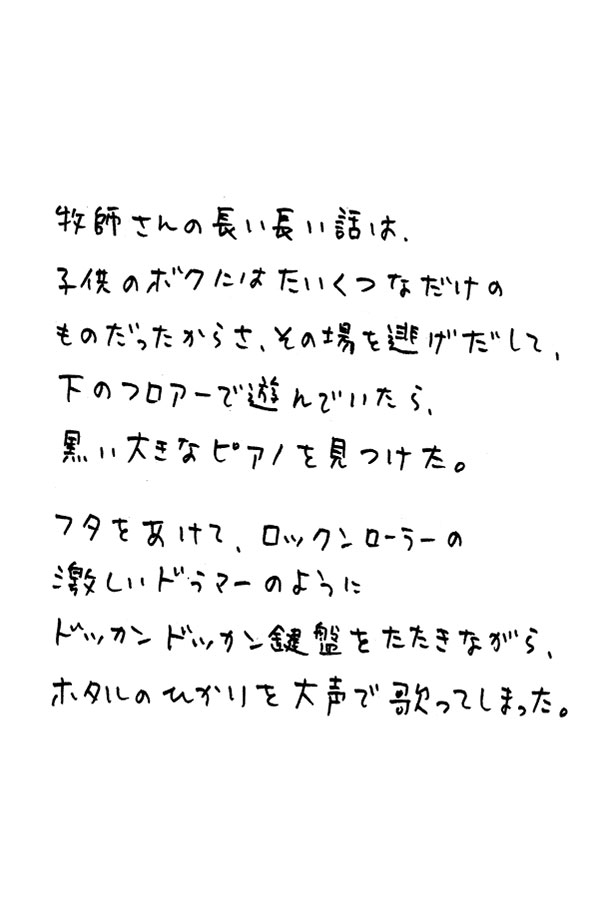 牧師さんの長い長い話は、
子供のボクにはたいくつなだけの
ものだったからさ、その場を逃げだして、
下のフロアーで遊んでいたら、
黒い大きなピアノを見つけた。
フタをあけて、ロックンローラーの
激しいドラマーのように
ドッカンドッカン鍵盤をたたきながら、
ホタルのひかりを大声で歌ってしまった。